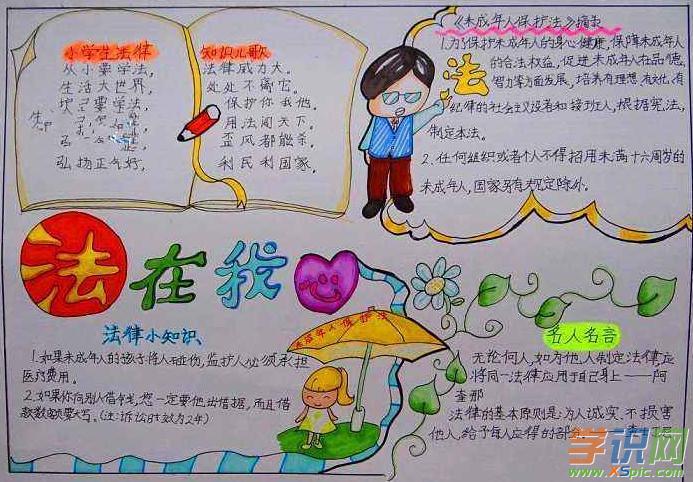 小学生法律
知识儿歌
从小要学法,
生活大世界,
要学法,
弘扬正气好,
法律威力大。
处处不离它。
保护你我他。
用法闯天下。
歪风都能杀。
利民利国家。
《未成年人保护法》摘束
1.为了保护未成年人的身心健康,保障未成年人
的合法权益,促进未成年人在品德,
智力等方面发展,培养有理想、有文化、有
纪律的社会主义设者和接班人,根据宪法,
制定本法。
2.任何组织或者个人不得招用未满十六周岁的
未成年人,国家另有规定除外。
法
法在我心
法律小知识
1.如果未成年人的孩子将人砸伤,监护人必须承担
医疗费用。
2.如果你向别人借钱,您一定要他出借据,而且借
款数额要大写。(注:诉讼时效为2年)
未成年人保护法
名人名言
无论何人,如为他人制定法律应
将同一法律应用于自己身上——阿
奎那
法律的基本原则是:为人诚实,不损害
他人,给予每人应得的部
学识网
www.XSpic.com